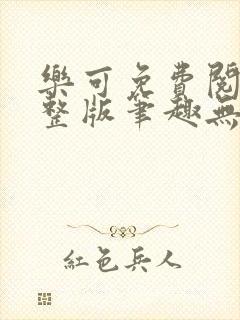 樂可免費閱
整版筆趣無
紅色兵人